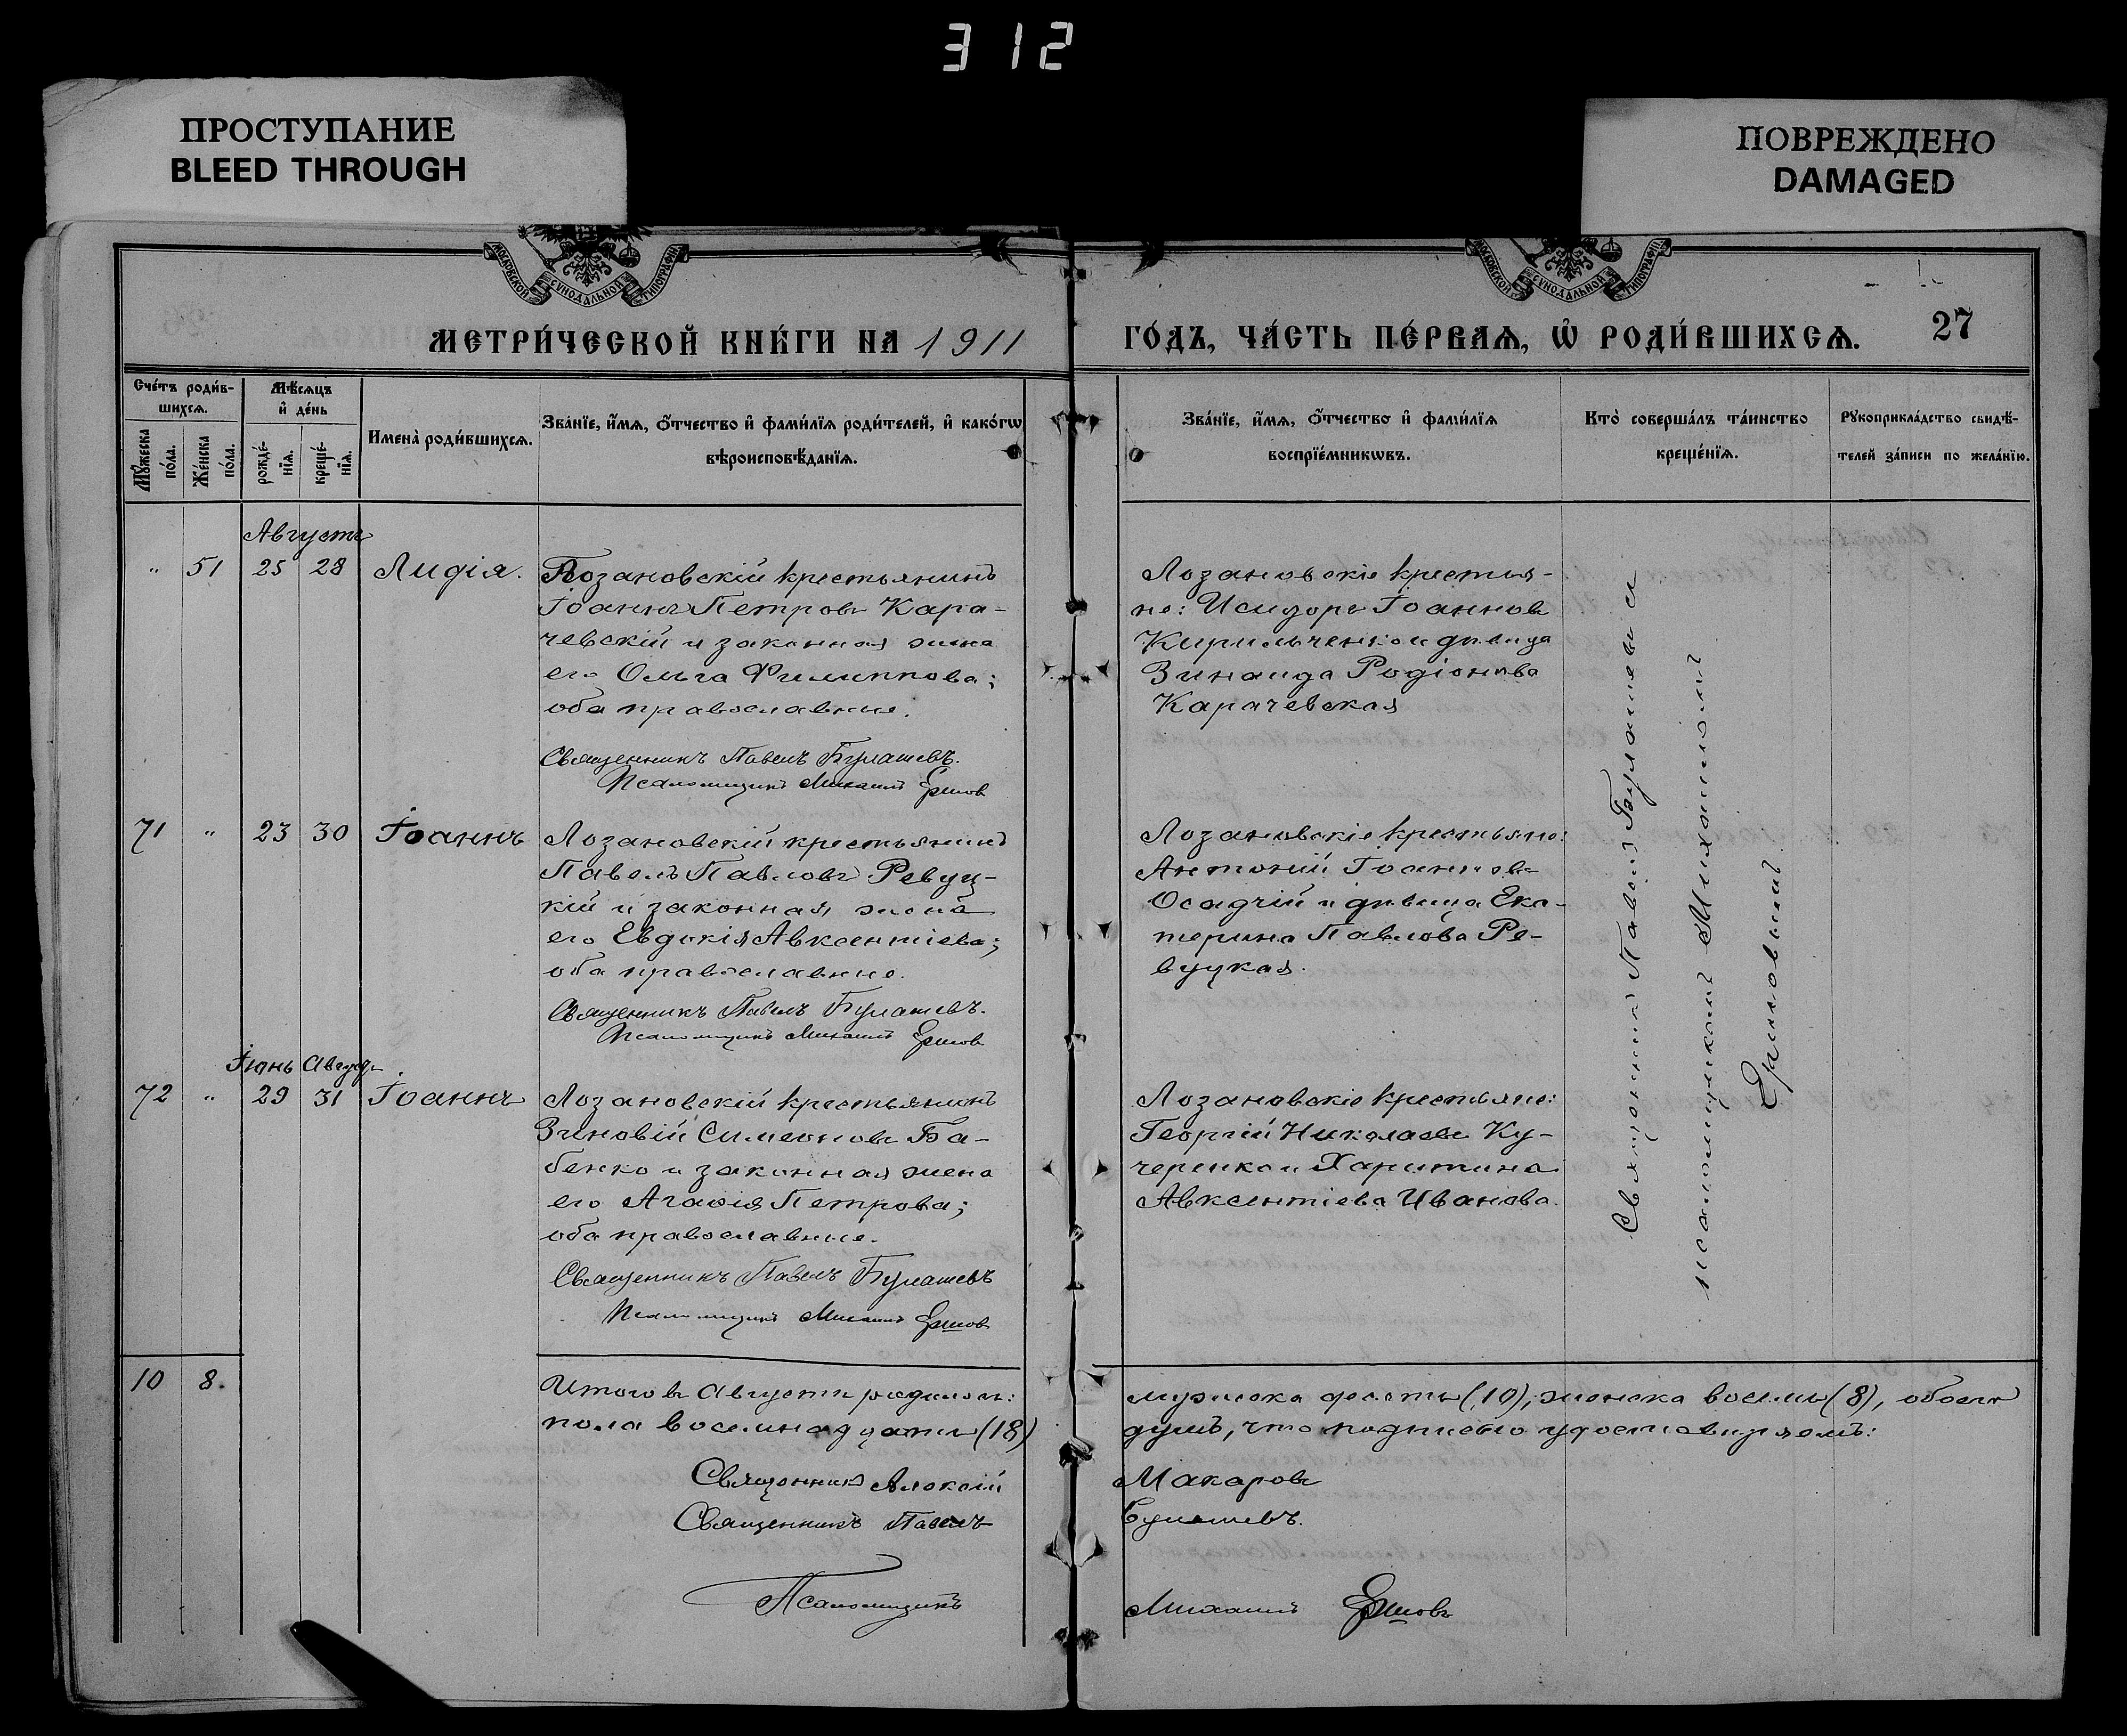 312
ПРОСТУПАНИЕ
BLEED THROUGH
ПОВРЕЖДЕНО
DAMAGED
МОСКОВСКОЙ СѴНОДАЛЬНОЙ ТИПОГРАФІИ
МОСКОВСКОЙ СѴНОДАЛЬНОЙ ТИПОГРАФІИ
МЕТРИ́ЧЕСКОЙ КНИ́ГИ НА 1911
ГО́ДЪ, ЧА́СТЬ ПЕ́РВАѦ, Ѡ҆ РОДИ́ВШИХСѦ.
27
Сче́тъ роди́в-
шихсѧ.
Мꙋ́жеска
по́ла.
Же́нска
по́ла.
Мѣ́сѧцъ
и҆ де́нь
рожде́-
нїѧ.
креще́-
нїѧ.
Имена̀ роди́вшихсѧ.
Зва́нїе, и҆́мѧ, ѻ҆́тчество и҆ фами́лїѧ роди́телей, и҆ како́гѡ
вѣроисповѣ́данїѧ.
Зва́нїе, и҆́мѧ, ѻ҆́тчество и҆ фами́лїѧ
воспрїе́мникѡвъ.
Кто̀ соверша́лъ та́инство
креще́нїѧ.
Рꙋкоприкла́дство свидѣ́-
телей за́писи по жела́нїю.
Августъ
" 51 25 28 Лидія.
Лозановскій крестьянинъ
Іоаннъ Петровъ Кара-
чевскій и законная жена
его Ольга Филиппова;
оба православные.
Священникъ Павелъ Булашевъ.
Псаломщикъ Михаилъ Ершов
Лозановскіе крестья-
не: Исидоръ Іоаннов
Кирильченко и дѣвица
Зинаида Родіонова
Карачевская
71 " 23 30 Іоаннъ
Лозановскій крестьянинъ
Павелъ Павловъ Ревуц-
кій и законная жена
его Евдокія Авксентіева;
оба православные.
Священникъ Павелъ Булашевъ.
Псаломщикъ Михаилъ Ершов
Лозановскіе крестьяне:
Антоній Іоаннов
Осадчій и дѣвица Ека-
терина Павлова Ре-
вуцкая.
Іюнь Август
72 " 29 31 Іоаннъ
Лозановскій крестьянинъ
Зиновій Симеоновъ Ба-
бенко и законная жена
его Агафія Петрова;
оба православные.
Священникъ Павелъ Булашевъ
Псаломщикъ Михаилъ Ершов
Лозановскіе крестьяне:
Георгій Николаевъ Ку-
черенко и Харитина
Авксентіева Иванова.
Священникъ Павелъ Булашевъ и
псаломщикъ Михаилъ
Ершовъ
10 8.
Итого въ Августѣ родилось:
мужеска десять (10), женска восемь (8), обоего
пола восемнадцать (18)
душъ, что подписью удостовѣряемъ:
Священникъ Алексій Макаровъ
Священникъ Павелъ Булашевъ.
Псаломщикъ Михаилъ Ершовъ